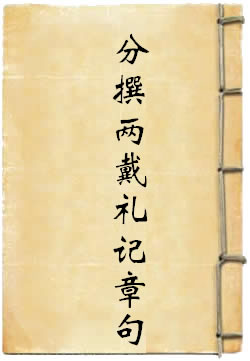 分撰两戴礼记章句